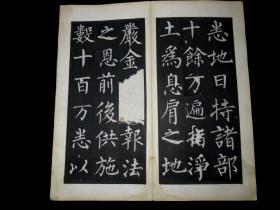 悉地日持諸部
十餘万遍指淨
土爲息肩之地
嚴金報法
之恩前後供施
數十百万悉以